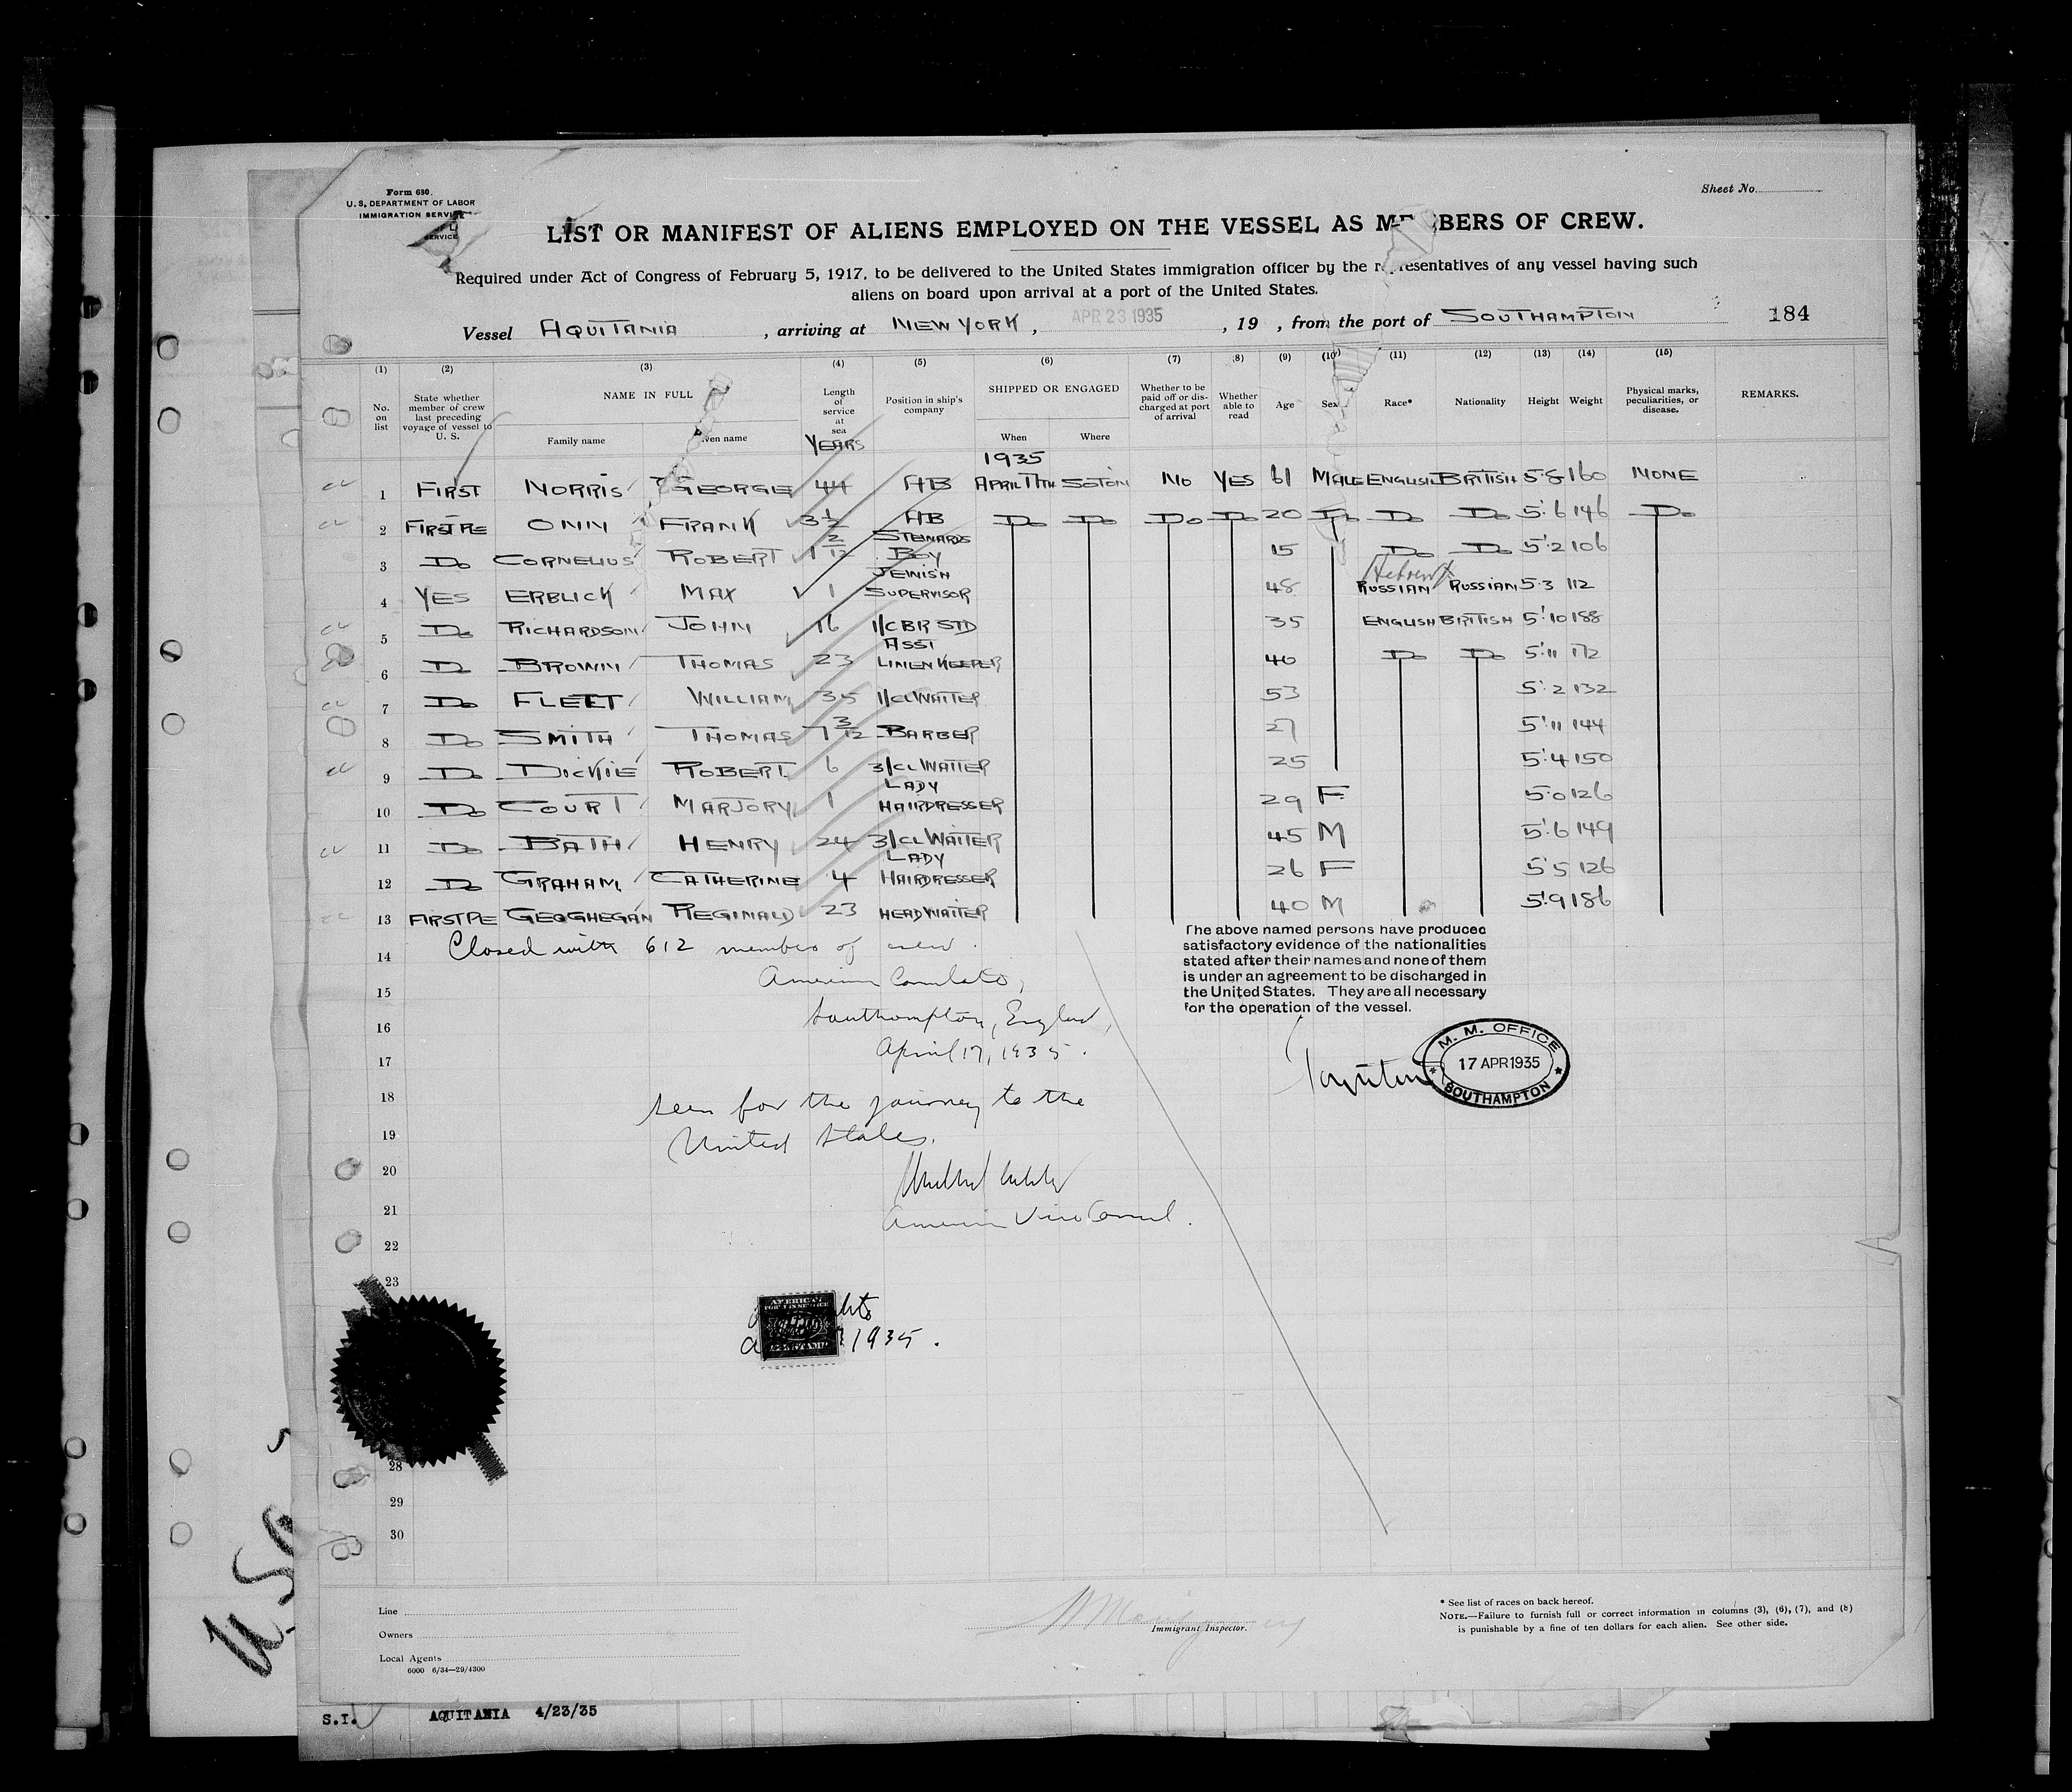 Form 680.
U. S. DEPARTMENT OF LABOR
IMMIGRATION SERVICE
SERVICE
Sheet No.
LIST OR MANIFEST OF ALIENS EMPLOYED ON THE VESSEL AS MEMBERS OF CREW.
Required under Act of Congress of February 5, 1917, to be delivered to the United States immigration officer by the representatives of any vessel having such
aliens on board upon arrival at a port of the United States.
Vessel AQUITANIA , arriving at NEW YORK , APR 23 1935 , 19 , from the port of SOUTHAMPTON 184
(1) (2) (3) (4) (5) (6) (7) (8) (9) (10) (11) (12) (13) (14) (15)
No. on list State whether member of crew last preceding voyage of vessel to U. S. NAME IN FULL Family name Given name Length of service at sea Position in ship's company SHIPPED OR ENGAGED When Where Whether to be paid off or discharged at port of arrival Whether able to read Age Sex Race* Nationality Height Weight Physical marks, peculiarities, or disease. REMARKS.
YEARS 1935
1 FIRST NORRIS GEORGE 44 AB APRIL 17TH SOTON NO YES 61 MALE ENGLISH BRITISH 5'8 160 NONE
2 FIRST PE ONN FRANK 3 1/2 AB Do Do Do Do 20 Do Do Do 5'6 146 Do
3 Do CORNELIUS ROBERT 1 2/12 STEWARDS BOY 15 Do Do 5'2 106
4 YES ERBLICH MAX 1 JEWISH SUPERVISOR 48 Hebrew RUSSIAN RUSSIAN 5'3 112
5 Do RICHARDSON JOHN 16 1/C BR STD 35 ENGLISH BRITISH 5'10 188
6 Do BROWN THOMAS 23 ASST LINEN KEEPER 40 Do Do 5'11 172
7 Do FLEET WILLIAM 35 1/CL WAITER 53 5'2 132
8 Do SMITH THOMAS 7 3/12 BARBER 27 5'11 144
9 Do DICKIE ROBERT 6 3/CL WAITER 25 5'4 150
10 Do COURT MARJORY 1 LADY HAIRDRESSER 29 F 5'0 126
11 Do BATH HENRY 24 3/CL WAITER 45 M 5'6 149
12 Do GRAHAM CATHERINE 4 LADY HAIRDRESSER 26 F 5'5 126
13 FIRST PE GEOGHEGAN REGINALD 23 HEAD WAITER 40 M 5'9 186
14 Closed with 612 members of crew.
The above named persons have produced
satisfactory evidence of the nationalities
stated after their names and none of them
is under an agreement to be discharged in
the United States. They are all necessary
for the operation of the vessel.
15 American Consulate,
16 Southampton, England,
17 April 17, 1935.
M. M. OFFICE
17 APR 1935
SOUTHAMPTON
18 Seen for the journey to the
19 United States.
20
21 American Vice Consul.
22
23
AMERICAN
FOREIGN SERVICE
1935.
28
29
30
Line
Owners
Local Agents
6000 6/34—29/4300
Immigrant Inspector.
* See list of races on back hereof.
NOTE.—Failure to furnish full or correct information in columns (3), (6), (7), and (8)
is punishable by a fine of ten dollars for each alien. See other side.
S.I. AQUITANIA 4/23/35